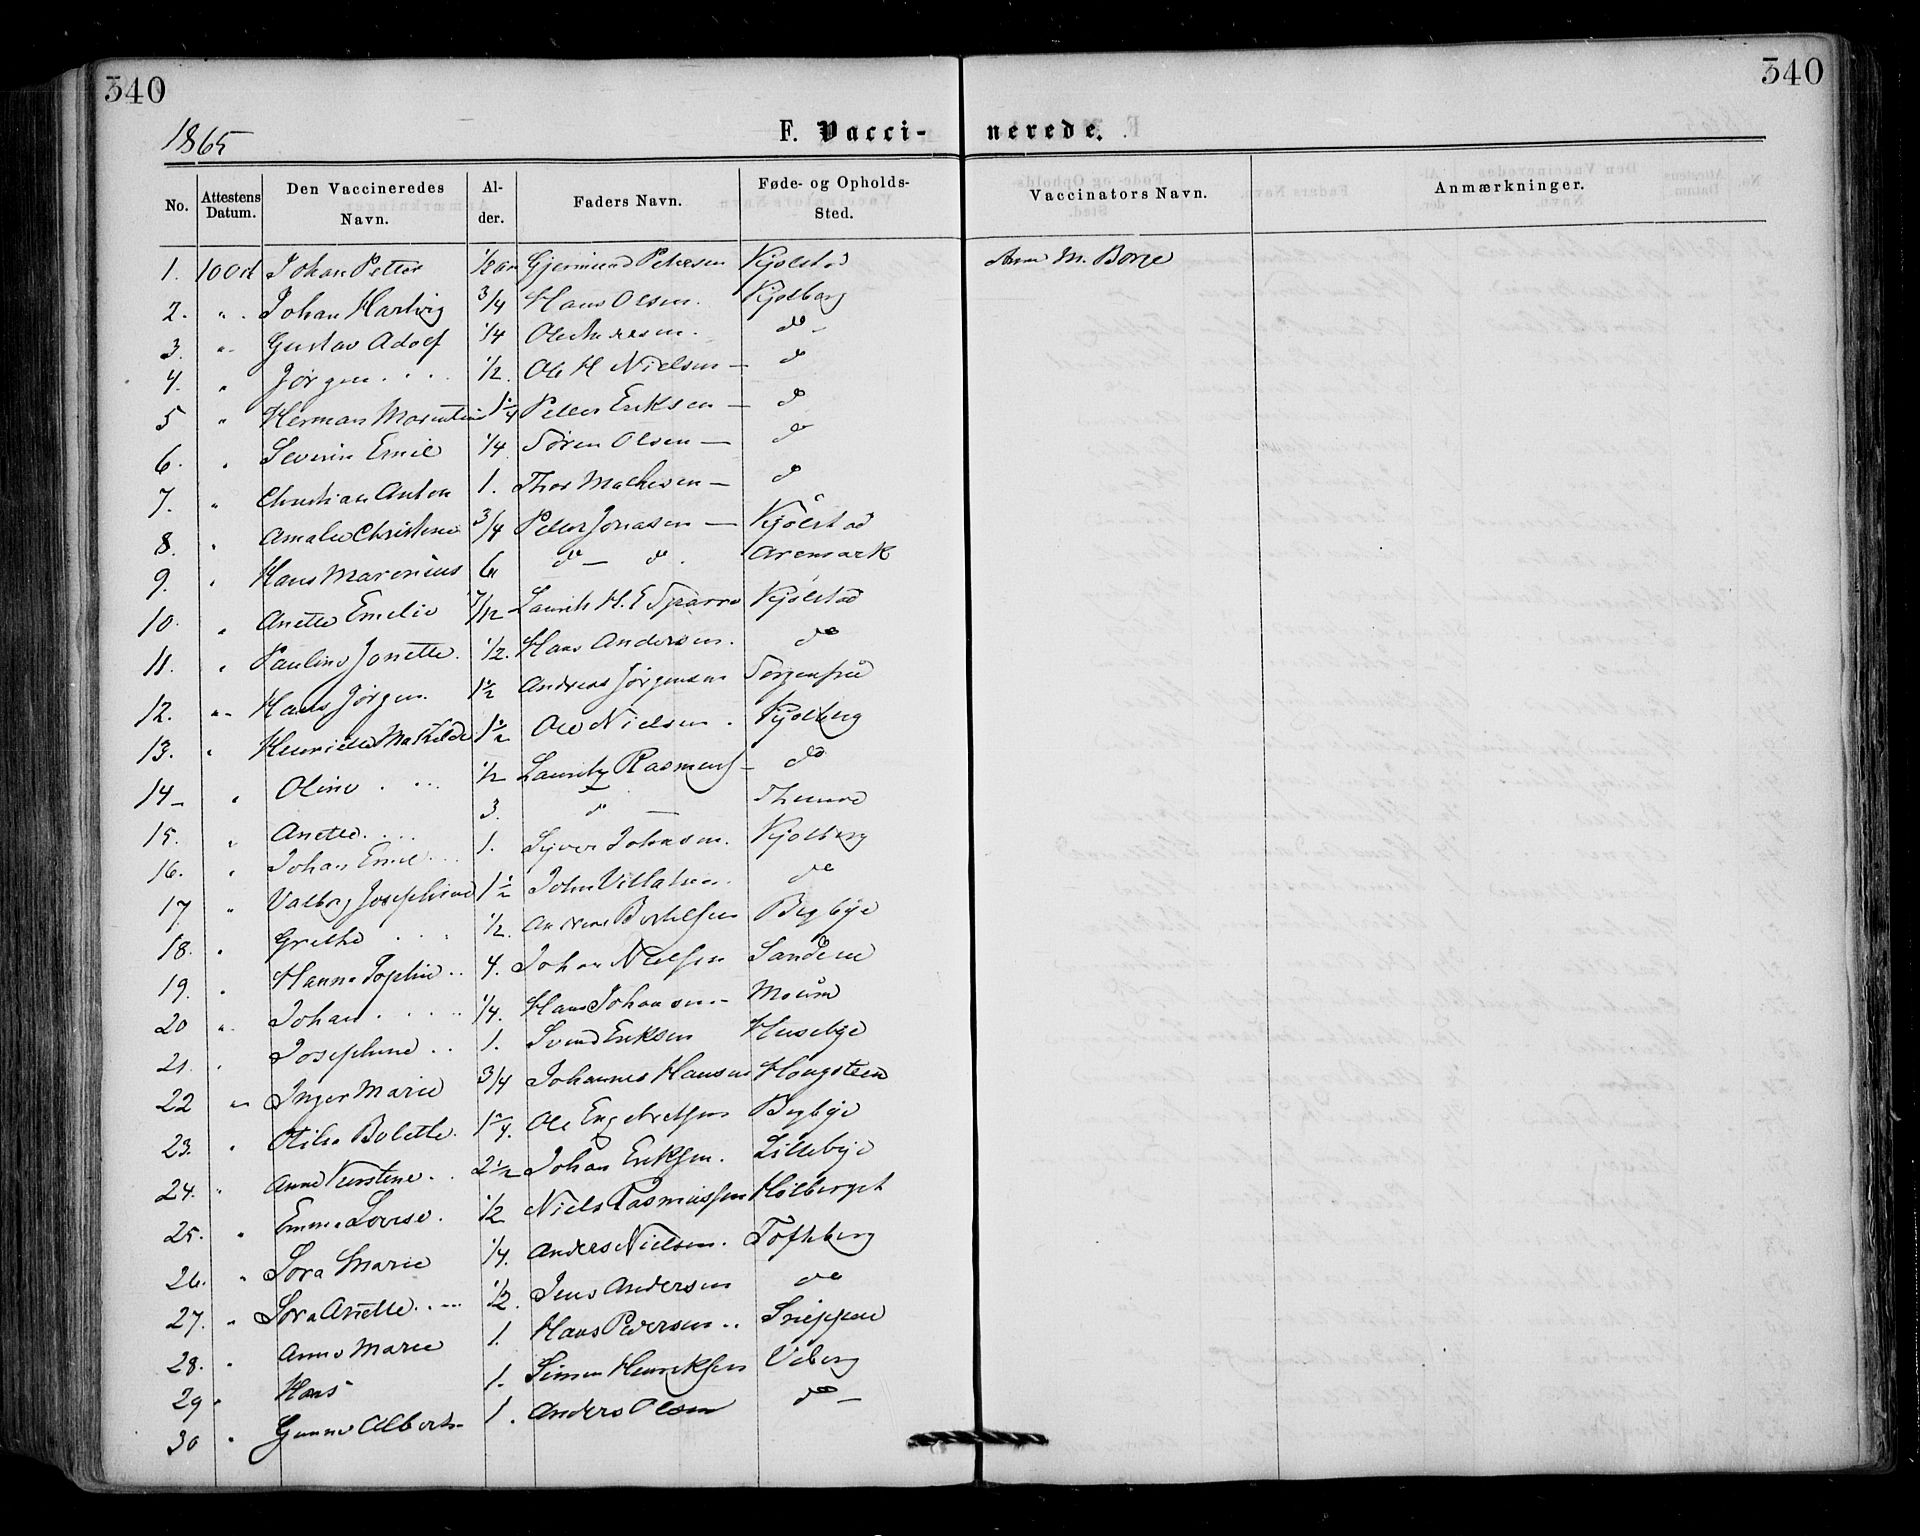 340 340
1865
F. Vacci- nerede.
No. Attestens Datum. Den Vaccineredes Navn. Al- der. Faders Navn. Føde- og Opholds- Sted. Vaccinators Navn. Anmærkninger.
1. 10 Oct Johan Petter 1/2 aar Gjermund Petersen Kjølstad M. Borge
2. " Johan Hartvig 3/4 Hans Olsen. Kjølberg
3. " Gustav Adolf 1/4 Ole do -
4. " Jørgen . . . 1/2. Ole H Nielsen - do
5 " Herman 1 1/4 Petter Eriksen - do
6. " Severin Emil 1/4 Søren Olsen - do
7. " Christian Anton 1. Thor Mathesen - do
8. " Amalie Christine 3/4 Petter Jonasen - Kjølstad
9. " Hans Marenius 6 do - do. Aremark
10. " Anette Emelie 7/12 Laurits H. E Sparre Kjølstad
11. " Pauline Jonette. 1/2. Hans Andersen. do
12. " Hans Jørgen. 1 1/2 Andreas Jørgensen Sorgenfri
13. " Henriette Mathilde 1 1/2 Ole Nielsen. Kjølberg
14- " Oline . . . 1/2 Lauritz Rasmuss - do
15. " Anette. . . . 3. do - Thune
16. " Johan Emil . . . 1. Syver Johnsen. Kjølberg
17. " Valborg Josephine 1 1/2 John do
18. " Grethe . . . 1/2. Andreas Bertelsen Begbye
19. " Hanna Sophie . . 4. Johan Nielsen Sandene
20 " Johan . . . . 1/4. Hans Johansen - Moum
21. " Josephine . . 1. Svend Eriksen Husebye
22 " Inger Marie 3/4 Johannes Hansen Hougsteen
23. " Otilia Bolette. 1 1/4. Ole Engebretsen Begbye
24. " Anne Kirstine . . 2 1/2 Johan Eriksen. Lillebye
25. " Emma Lovise. 1/2 Niels Rasmussen Holberget
26. " Lora Marie 1/4. Anders Nielsen. Tofteberg
27. " Lora Anette. . . . 1/2. Jens Andersen do
28. " Anne Marie 1. Hans Pedersen . . Snippen
29 " Hans 1. Simen Henriksen Viberg
30 " Alberth 1. Anders Olsen do -